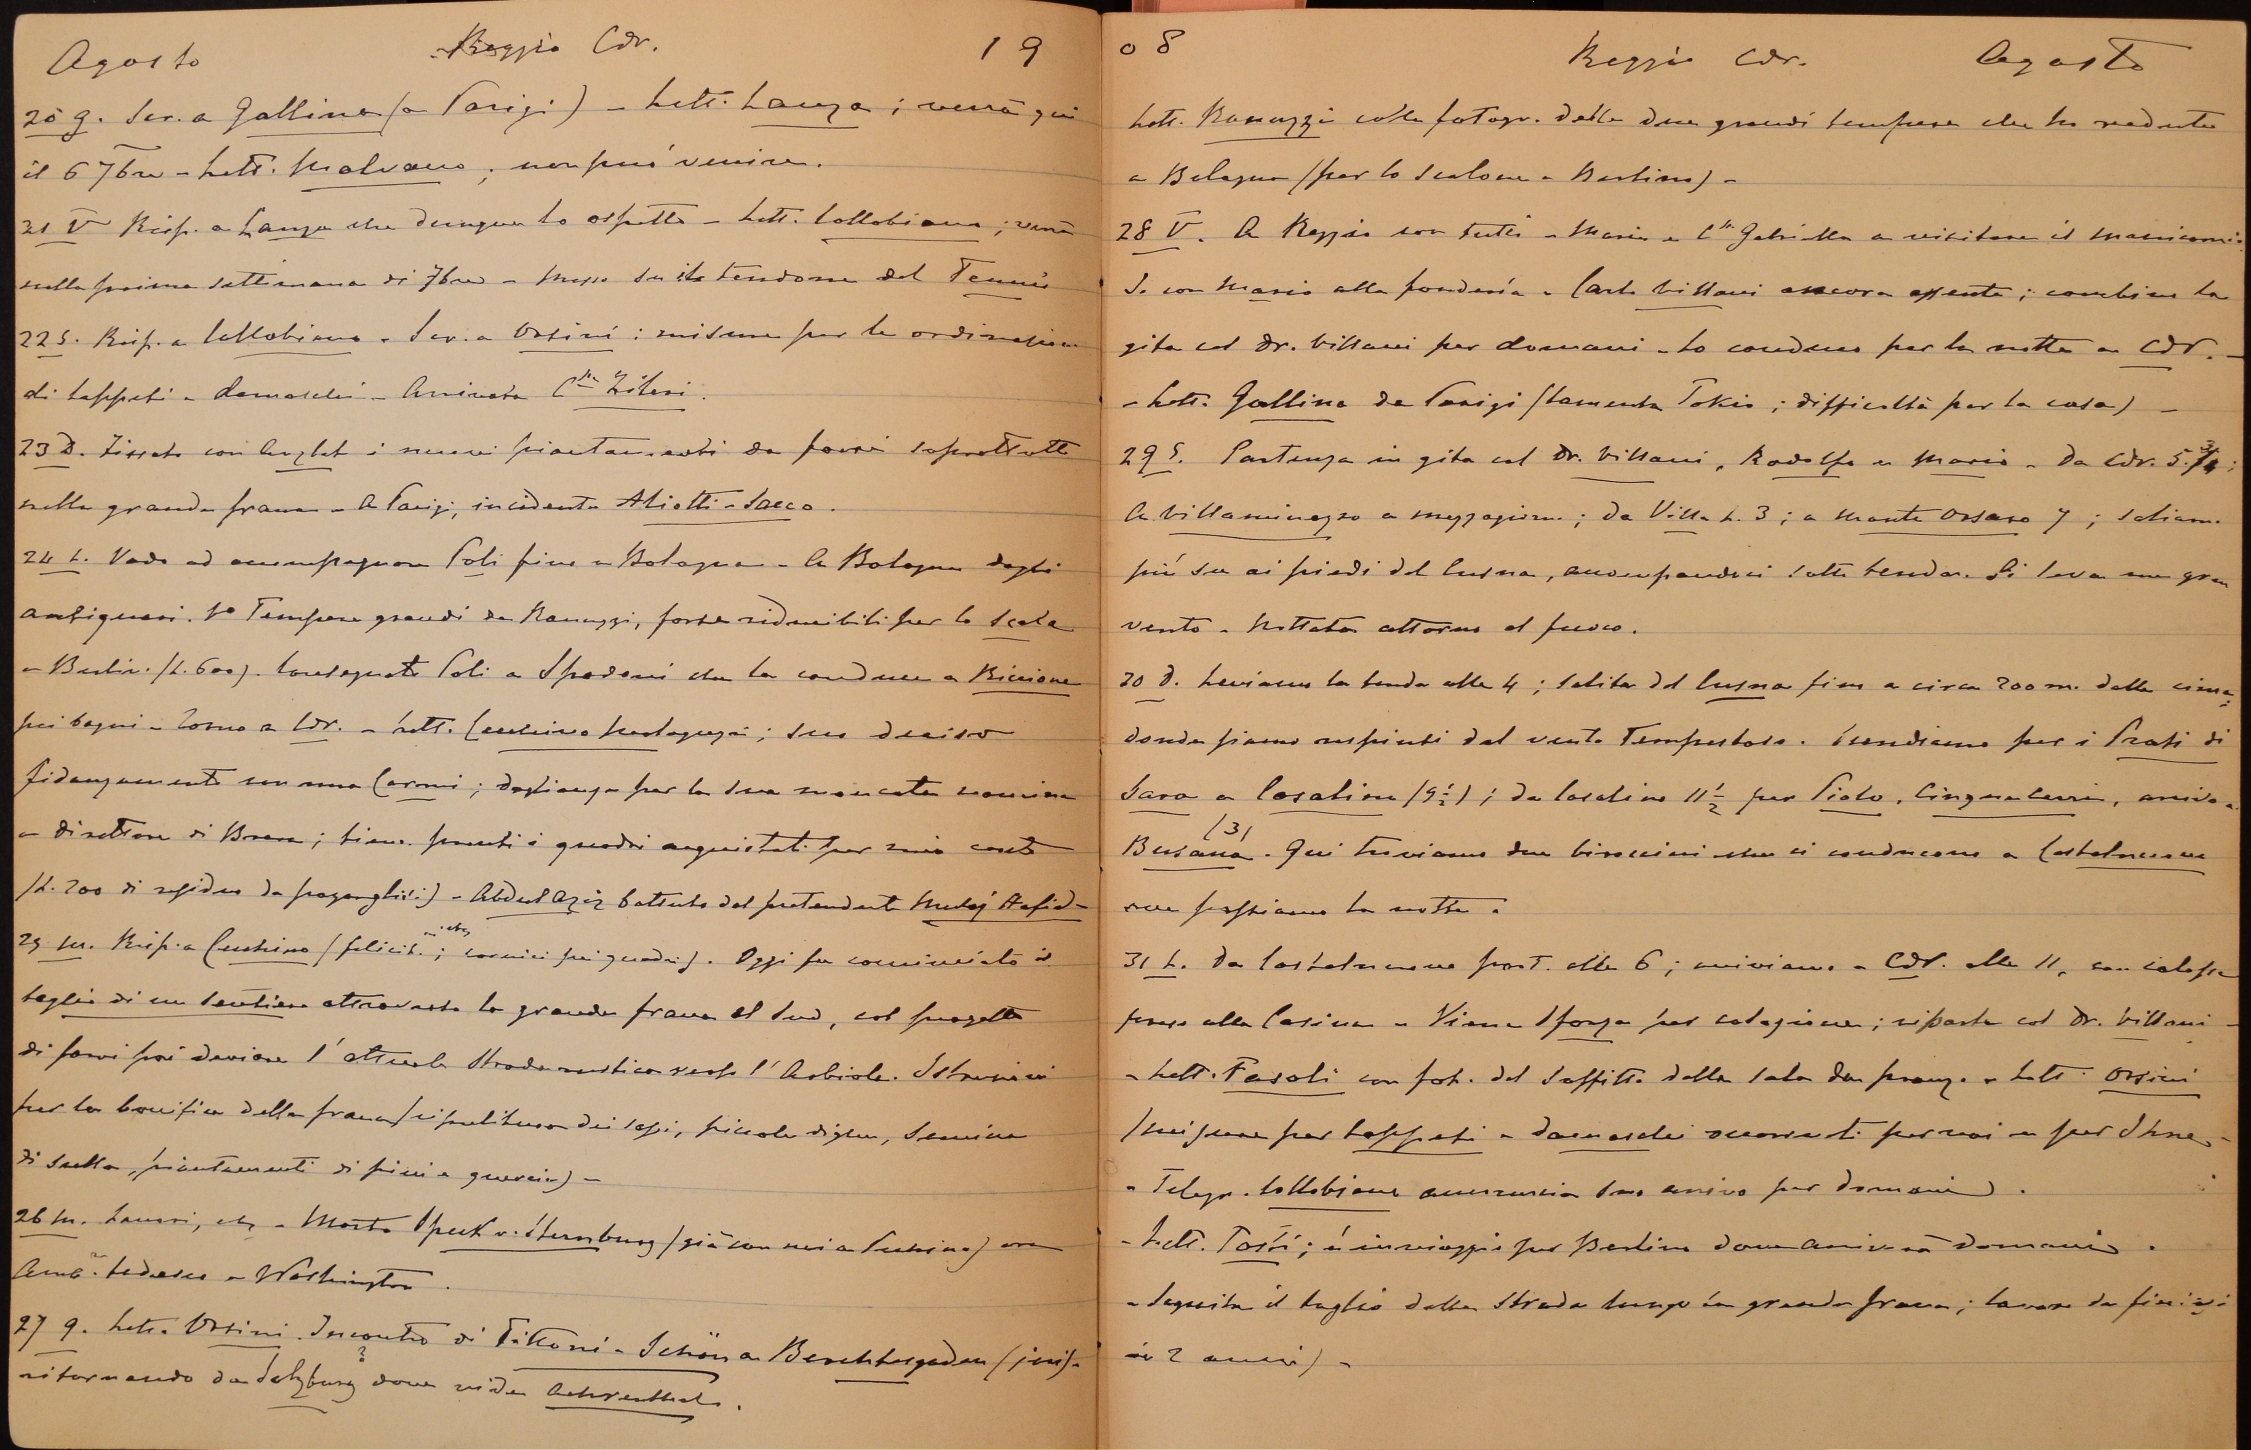 Agosto Reggio Cdr. 19
20 g. Scr. a Gallina (a Parigi) - Lett. Lanza; verrà qui
il 6 7bre - Lett. Malvano; non può venire.
21 V Risp. a Lanza che dunque lo aspetto - Lett. Collobiano; verrà
nella prima settimana di 7bre - Messo su il tendone del Tennis
22 S. Risp. a Collobiano - Scr. a Orsini: misure per le ordinazioni
di tappeti e damaschi - Arrivata C.ssa Zileri.
23 D. Fissato con Anzlet i nuovi piantamenti da farsi soprattutto
nella grande frana - A Parigi, incidente Aliotti-Sacco.
24 L. Vado ad accompagnare Poli fino a Bologna - A Bologna dagli
antiquari. Tempere grandi da Ranuzzi, forse riducibili per la Scala
a Berlin. (L. 600). Consegnato Poli a Spadoni che la conduce a Riccione
pei bagni - Torno a Cdr. - Lett. Cecchino Malaguzzi; suo deciso
fidanzamento con una Carmi; doglianza per la sua mancata nomina
a direttore di Brera; tiene pronti i quadri acquistati per mio conto
(L. 200 di residuo da pagargli) - Abdul Aziz battuto dal pretendente Muley Hafid -
25 M. Risp. a Cecchino (felicit.; cornici pei quadri). Oggi fu cominciato il
taglio di un sentiero attraverso la grande frana al Sud, col progetto
di farvi poi deviare l'attuale strada rustica verso l'Arbiola. Istruzioni
per la bonifica della frana (ripulitura dei sassi, piccole dighe, semina
di sulla, piantamenti di pini e quercie) -
26 M. Lavori, etc - Morto Speck v. Sternburg (già con noi a Pechino) ora
Amb.re tedesco a Washington.
27 g. Lett. Orsini. Incontro di Tittoni - Schön a Berchtesgaden (ieri) -
ritornando da Salzburg dove vide Aehrenthal.
08 Reggio Cdr. Agosto
Lett. Ranuzzi colle fotogr. delle due grandi tempere che ho vedute
a Bologna (per lo scalone a Berlino) -
28 V. A Reggio con tutti - Maria e C.ssa Gabriella a visitare il manicomio.
Io con Mario alla fonderia - Carlo Villani ancora assente; combino la
gita col Dr. Villani per domani - Lo conduco per la notte a Cdr. -
- Lett. Gallina da Parigi (lamenta Tokio; difficoltà per la casa) -
29 S. Partenza in gita col Dr. Villani, Rodolfo e Mario - Da Cdr. 5.3/4;
A Villaminozzo a mezzogiorno; da Villa h. 3; a Monte Orsaro 7; saliamo
più su ai piedi del Cusna, accampandoci sotto tenda. Si leva un gran
vento - Nottata attorno al fuoco.
30 D. Leviamo la tenda alle 4; salita del Cusna fino a circa 200 m. dalla cima,
donde siamo respinti dal vento tempestoso. Scendiamo per i Prati di
Sara a Casalino (9 1/2); da Casalino 11 1/2 per Piolo, Cinquecerri, arrivo a
Busana (3). Qui troviamo due biroccini che ci conducono a Castelnuovo
ove passiamo la notte.
31 L. Da Castelnuovo part. alle 6; arriviamo a Cdr. alle 11, con calesse
preso alla Casina - Viene Sforza per colazione; riparte col Dr. Villani -
- Lett. Fasoli con fot. del soffitto della sala da pranzo - Lett. Orsini
(misure per tappeti e damaschi occorrenti per noi e per
- Telegr. Collobiano annunzia suo arrivo per domani.
- Lett. Tosti; è in viaggio per Berlino dove arriverà domani.
- Seguita il taglio della strada lungo la grande frana; lavoro da finirsi
in 2 anni) -